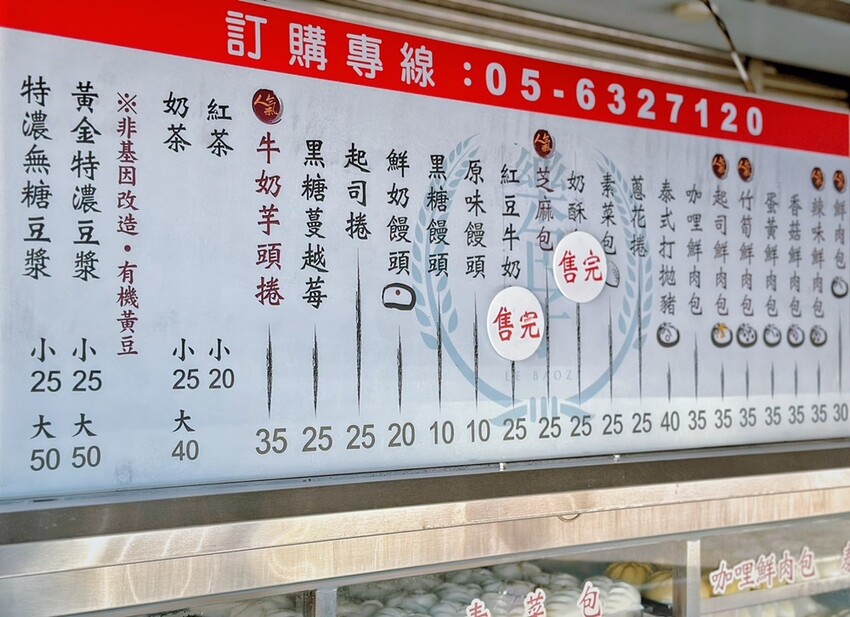 訂購專線：05-6327120
人氣 鮮肉包 30
人氣 辣味鮮肉包 35
香菇鮮肉包 35
蛋黃鮮肉包 35
人氣 竹筍鮮肉包 35
人氣 起司鮮肉包 35
咖哩鮮肉包 35
泰式打拋豬 40
蔥花捲 25
素菜包 25
奶酥 售完 25
人氣 芝麻包 25
紅豆牛奶 售完 25
原味饅頭 10
黑糖饅頭 10
鮮奶饅頭 20
起司捲 25
黑糖蔓越莓 25
人氣 牛奶芋頭捲 35
紅茶 小20
奶茶 小25 大40
※非基因改造・有機黃豆
黃金特濃豆漿 小25 大50
特濃無糖豆漿 小25 大50
LE BAOZ
素菜包
咖哩鮮肉包